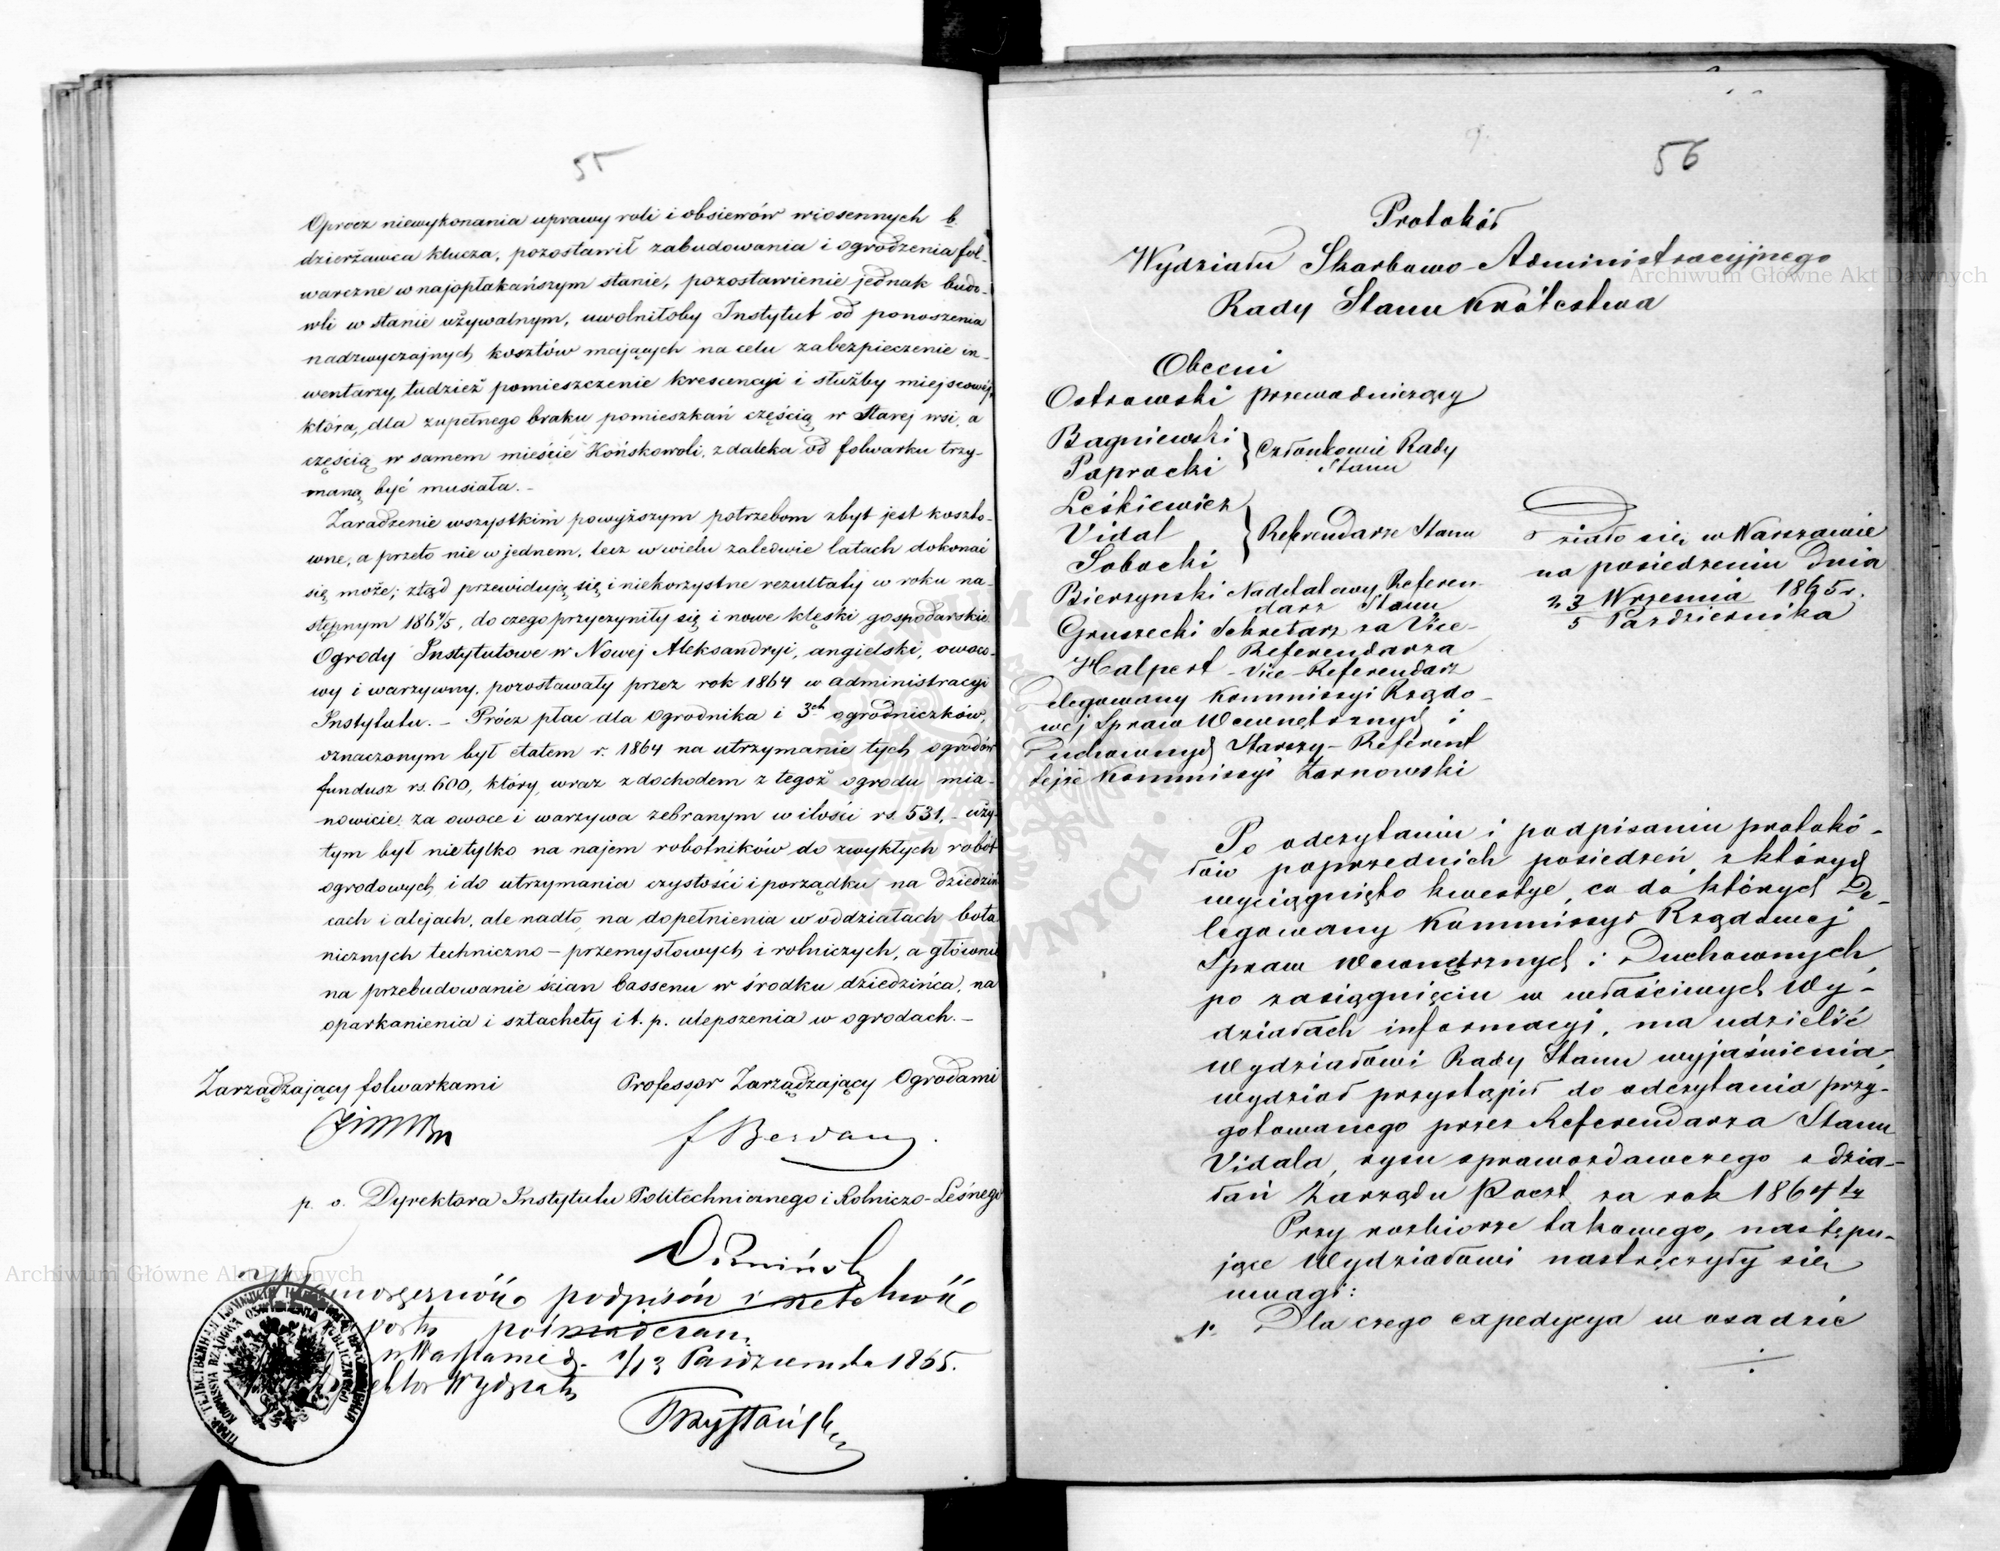 55
Oprócz niewykonania uprawy roli i obsiewów wiosennych b.
dzierżawca klucza, pozostawił zabudowania i ogrodzenia fol-
warczne w najopłakańszym stanie, pozostawienie jednak budo-
wli w stanie używalnym, uwolniłoby Instytut od ponoszenia
nadzwyczajnych kosztów mających na celu zabezpieczenie in-
wentarzy, tudzież pomieszczenie krescencyi i służby miejscowéj,
która, dla zupełnego braku pomieszkań częścią w Starej wsi, a
częścią w samem mieście Końskowoli, zdaleka od folwarku trzy-
maną być musiała. -
Zaradzenie wszystkim powyższym potrzebom zbyt jest koszto-
wne, a przeto nie w jednem, lecz w wielu zaledwie latach dokonać
się może; ztąd przewidują się i niekorzystne rezultaty w roku na-
stępnym 1864/5, do czego przyczyniły się i nowe klęski gospodarskie.
Ogrody Instytutowe w Nowej Aleksandryi, angielski, owoco-
wy i warzywny, pozostawały przez rok 1864 w administracyi
Instytutu. - Prócz płac dla Ogrodnika i 3ch ogrodniczków,
oznaczonym był etatem r. 1864 na utrzymanie tych ogrodów
fundusz rs. 600, który, wraz z dochodem z tegoż ogrodu mia-
nowicie: za owoce i warzywa zebranym w ilości rs. 531, - uży-
tym był nietylko na najem robotników do zwykłych robót
ogrodowych, i do utrzymania czystości i porządku na dziedziń
cach i alejach, ale nadto, na dopełnienia w oddziałach bota
nicznych techniczno - przemysłowych i rolniczych, a głównie
na przebudowanie ścian bassenu w środku dziedzińca, na
oparkanienia i sztachety i t. p. ulepszenia w ogrodach. -
Zarządzający folwarkami
Professor Zarządzający Ogrodami
p. o. Dyrektora Instytutu Politechnicznego i Rolniczo-Leśnego
podpisów i
w Warszawie d. 1/13 Października 1865.
56
Protokół
Wydziału Skarbowo-Administracyjnego
Rady Stanu Królestwa
Obecni
Ostrowski przewodniczący
Bagniewski
Paprocki
Członkowie Rady
Stanu
Leśkiewicz
Vidal
Sobocki
Referendarze Stanu
Bierzynski Nadetatowy Referen-
darz Stanu
Gruszecki Sekretarz za Vice-
Referendarza
Halpert - Vice-Referendarz
Delegowany Kommissyi Rządo-
wéj Spraw Wewnętrznych i
Duchownych Starszy-Referent
tejże Kommissyi Żarnowski
Działo się w Warszawie
na posiedzeniu Dnia
23 Września 1865 r.
5 Października
Po odczytaniu i podpisaniu protokó-
łów poprzednich posiedzeń, z których
wyciągnięto kwestye, co do których De-
legowany Kommissyi Rządowej
Spraw Wewnętrznych i Duchownych,
po zasiągnięciu w właściwych Wy-
działach informacyi, ma udzielić
Wydziałowi Rady Stanu wyjaśnienia,
wydział przystąpił do odczytania przy-
gotowanego przez Referendarza Stanu
Vidala, rysu sprawozdawczego z dzia-
łań Zarządu Poczt za rok 1864ty
Przy rozbiorze takowego, następu-
jące Wydziałowi nastręczyły się
uwagi:
1. Dla czego expedycya w osadzie
Archiwum Główne Akt Dawnych
Archiwum Główne Akt Dawnych